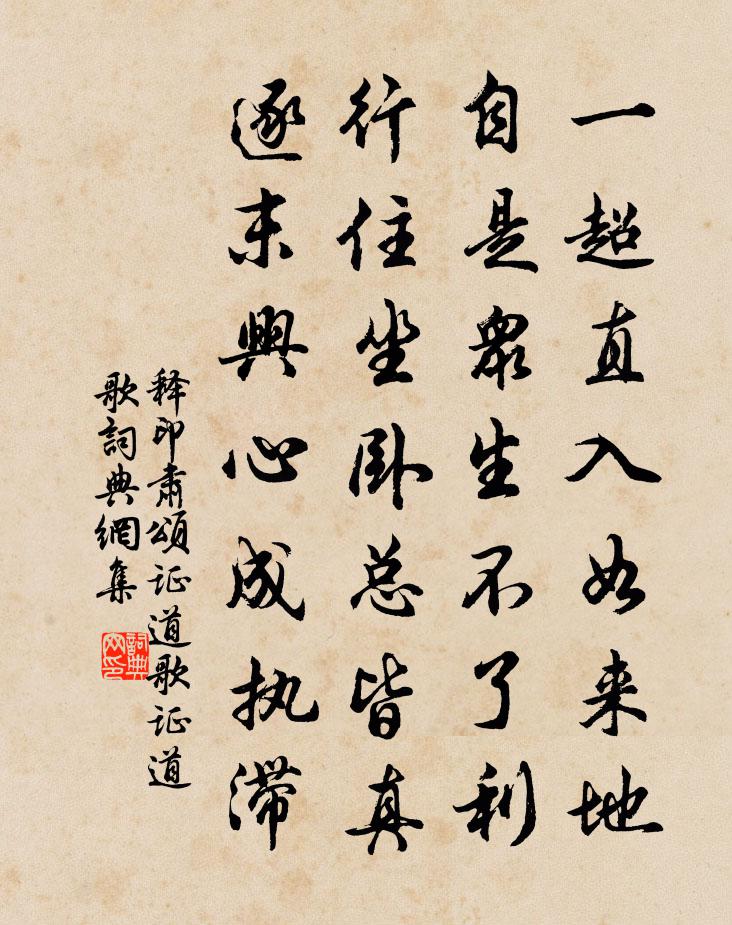 一超直入如来地
自是眾生不了利
行住坐卧总皆真
逐末興心成执滞
释印肃頌证道歌证道
歌詞典網集
詞典
网印